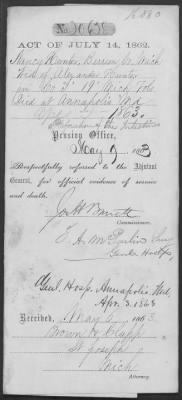 No. 20,638
ACT OF JULY 14, 1862.
Nancy Hunter, Berrien Co. Mich
Wid. of Alexander Hunter
in Co. I. 19" Mich Vols
Died at Annapolis Md
April 3 1863.
of the Intestines
Pension Office,
May 9, 1863
Respectfully referred to the Adjutant
General, for official evidence of service
and death.
Jos. H. Barrett
Commissioner.
E. A. M
Genl. Hosp. Annapolis, Md,
Apr. 3. 1863
Received, May 5 1863
Brown & Clapp
St Joseph
Mich
Attorney.